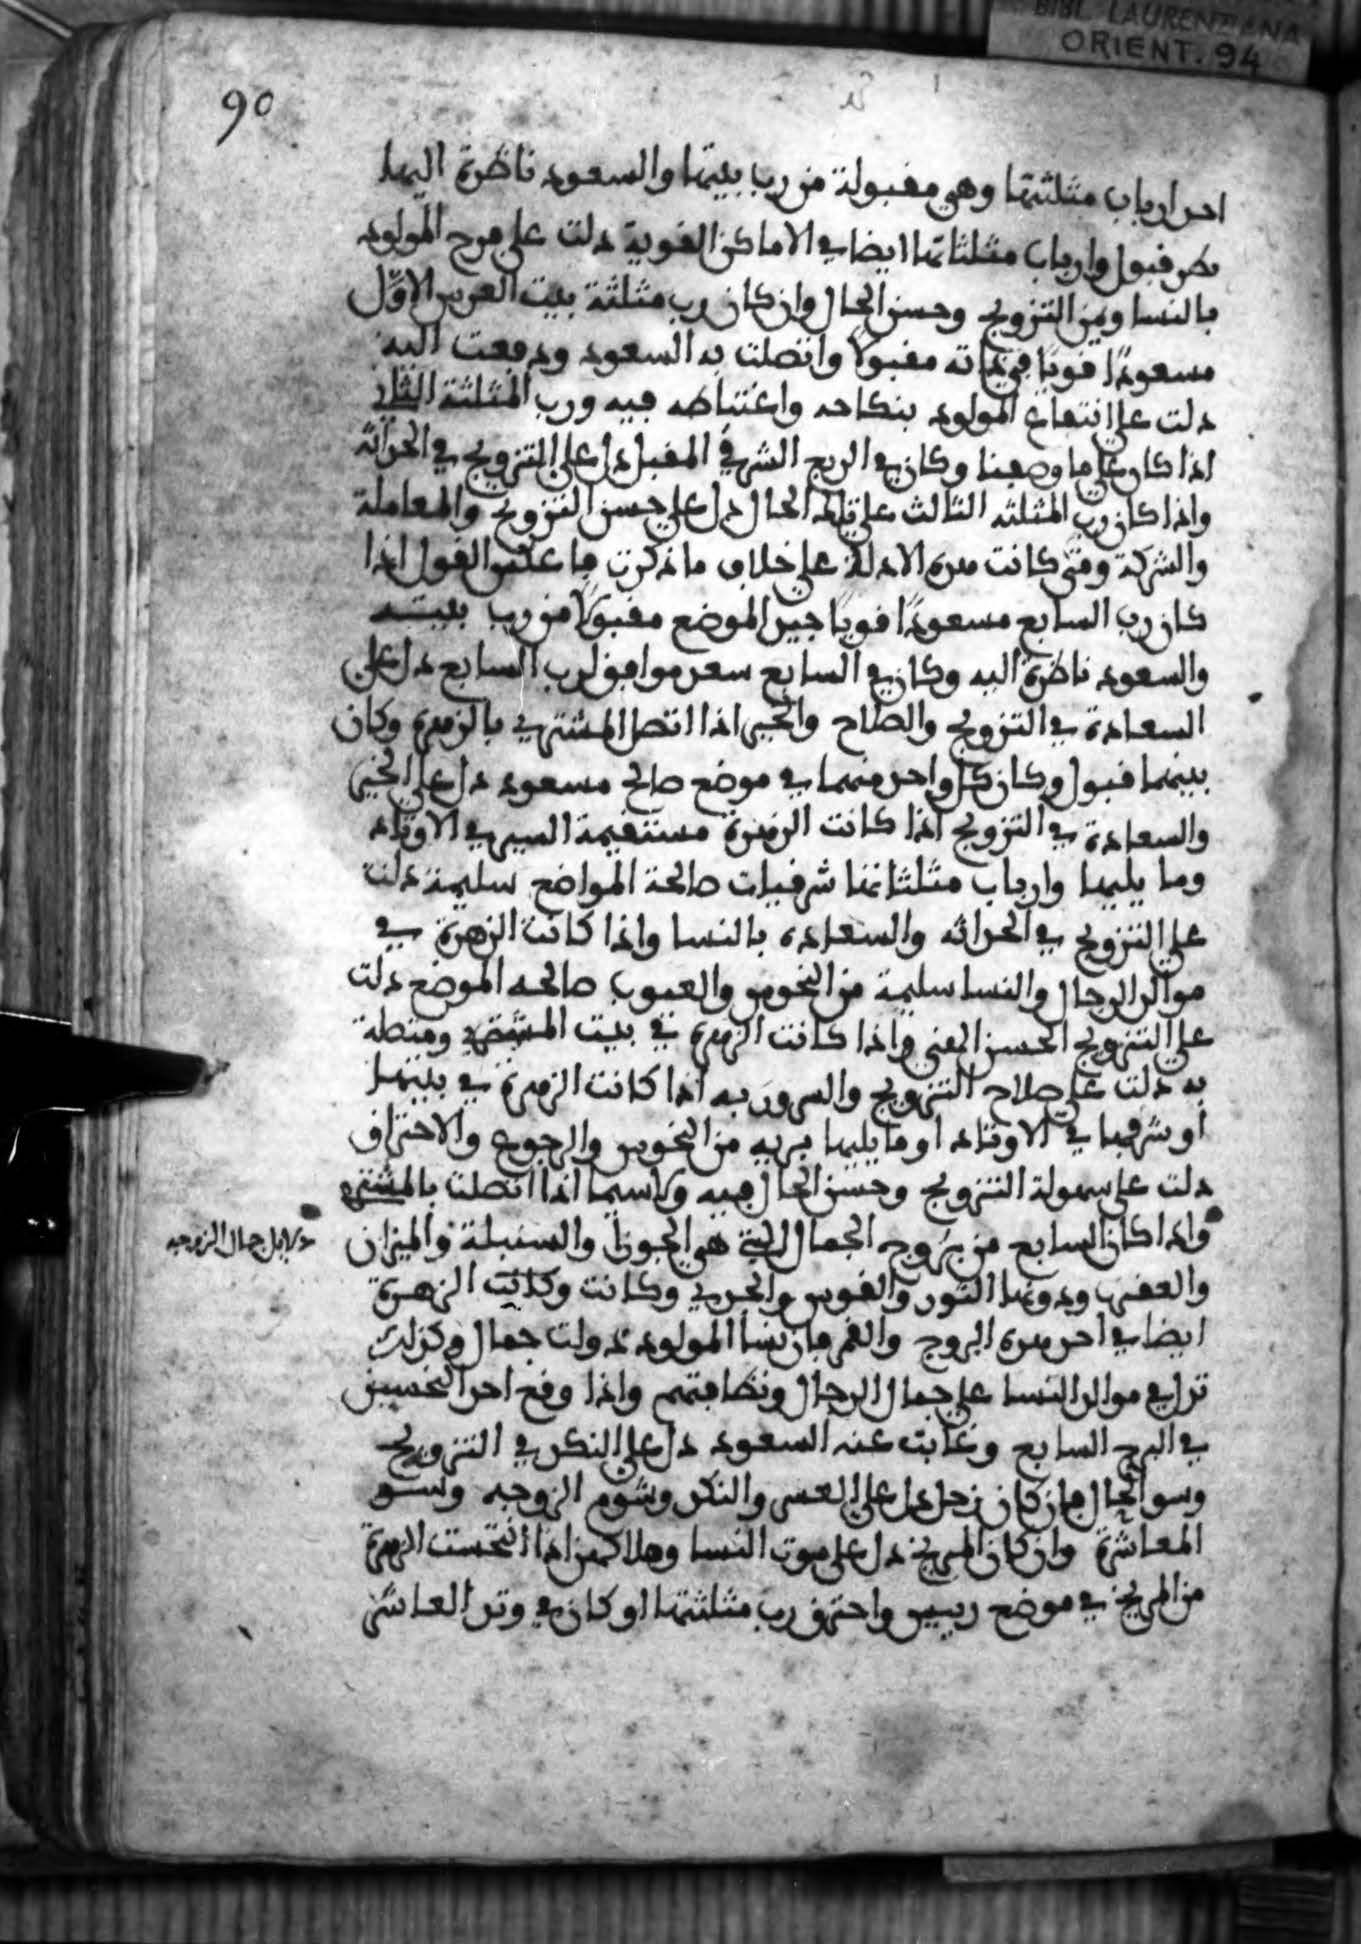 BIBL. LAURENZIANA
ORIENT. 94
90
احد ارباب مثلثتها وهي مقبولة من رب بيتها والسعود ناظرة اليها
نظر قبول وارباب مثلثاتها ايضا في الاماكن القوية دلت على فرح المولود
بالنسا ويمن التزويج وحسن الحال وان كان رب مثلثة بيت العرس الاول
مسعودًا قويًا في ذاته مقبولًا واتصلت به السعود ودفعت اليه
دلت على انتفاع المولود بنكاحه واغتباطه فيه ورب المثلثة الثاني
اذا كان على ما وصفنا وكان في الربع الشرقي المقبل دل على التزويج في الحداثه
واذا كان رب المثلثه الثالث على تلك الحال دل على حسن التزويج والمعاملة
والشركة ومتى كانت هذه الادلة على خلاف ما ذكرت فاعكس القول اذا
كان رب السابع مسعودًا قويا جيد الموضع مقبولًا من رب بيته
والسعود ناظرة اليه وكان في السابع سعد موافق لرب السابع دل على
السعادة في التزويج والصلاح والخير اذا اتصل المشتري بالزهرة وكان
بينهما قبول وكان كل واحد منهما في موضع صالح مسعود دل على الخير
والسعادة في التزويج اذا كانت الزهرة مستقيمة السير في الاوتاد
وما يليها وارباب مثلثاتها شرقيات صالحة المواضع سليمة دلت
على التزويج في الحداثه والسعاده بالنسا واذا كانت الزهرة في
موالد الرجال والنسا سليمة من النحوس والعيوب صالحه الموضع دلت
على التزويج الحسن الهني واذا كانت الزهرة في بيت المشتري ومتصلة
به دلت على صلاح التزويج والسرور به اذا كانت الزهرة في بيتها
او شرفها في الاوتاد او ما يليها برية من النحوس والرجوع والاحتراق
دلت على سهولة التزويج وحسن الحال فيه ولا سيما اذا اتصلت بالمشتري
واذا كان السابع من بروج الجمال التي هي الجوزا والسنبلة والميزان
دلايل جمال الزوجه
والعقرب ودونها الثور والقوس والجدي وكانت وكانت الزهرة
ايضا في احد هذه البروج والقمر فان نسا المولود ذوات جمال وكذلك
ترا في موالد النسا على جمال الرجال ونظافتهم واذا وقع احد النحسين
في البرج السابع وغابت عنه السعود دل على النكد في التزويج
وسو الحال فان كان زحل دل على العسر والنكد وشوم الزوجه وسو
المعاشرة وان كان المريخ دل على موت النسا وهلاكهن اذا انتحست الزهرة
من المريخ في موضع رديء واحترق رب مثلثتها او كان في وتد العاشر